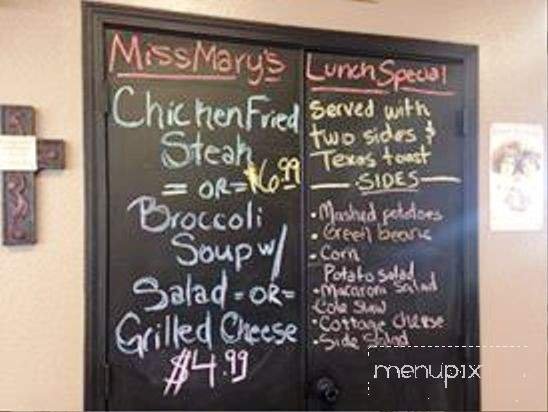 Miss Mary's
Chicken Fried
Steak
$6.99
= OR =
Broccoli
Soup w/
Salad = OR =
Grilled Cheese
$4.99
Lunch Special
Served with
two sides &
Texas toast
SIDES
• Mashed potatoes
• Green beans
• Corn
Potato salad
• Macaroni Salad
• Cole Slaw
• Cottage Cheese
• Side Salad
menupix